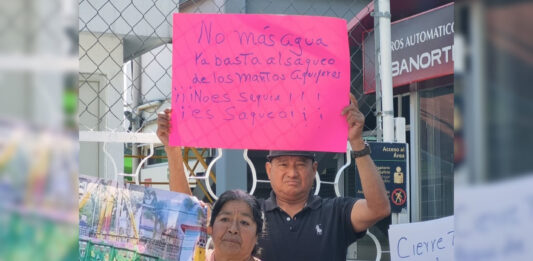 No más agua
Ya basta al saqueo
de los mantos aquiferos
¡¡¡No es sequia!!!
¡es saqueo!¡¡
ROS AUTOMATICO
BANORTE
Acceso al
Área
Cierre